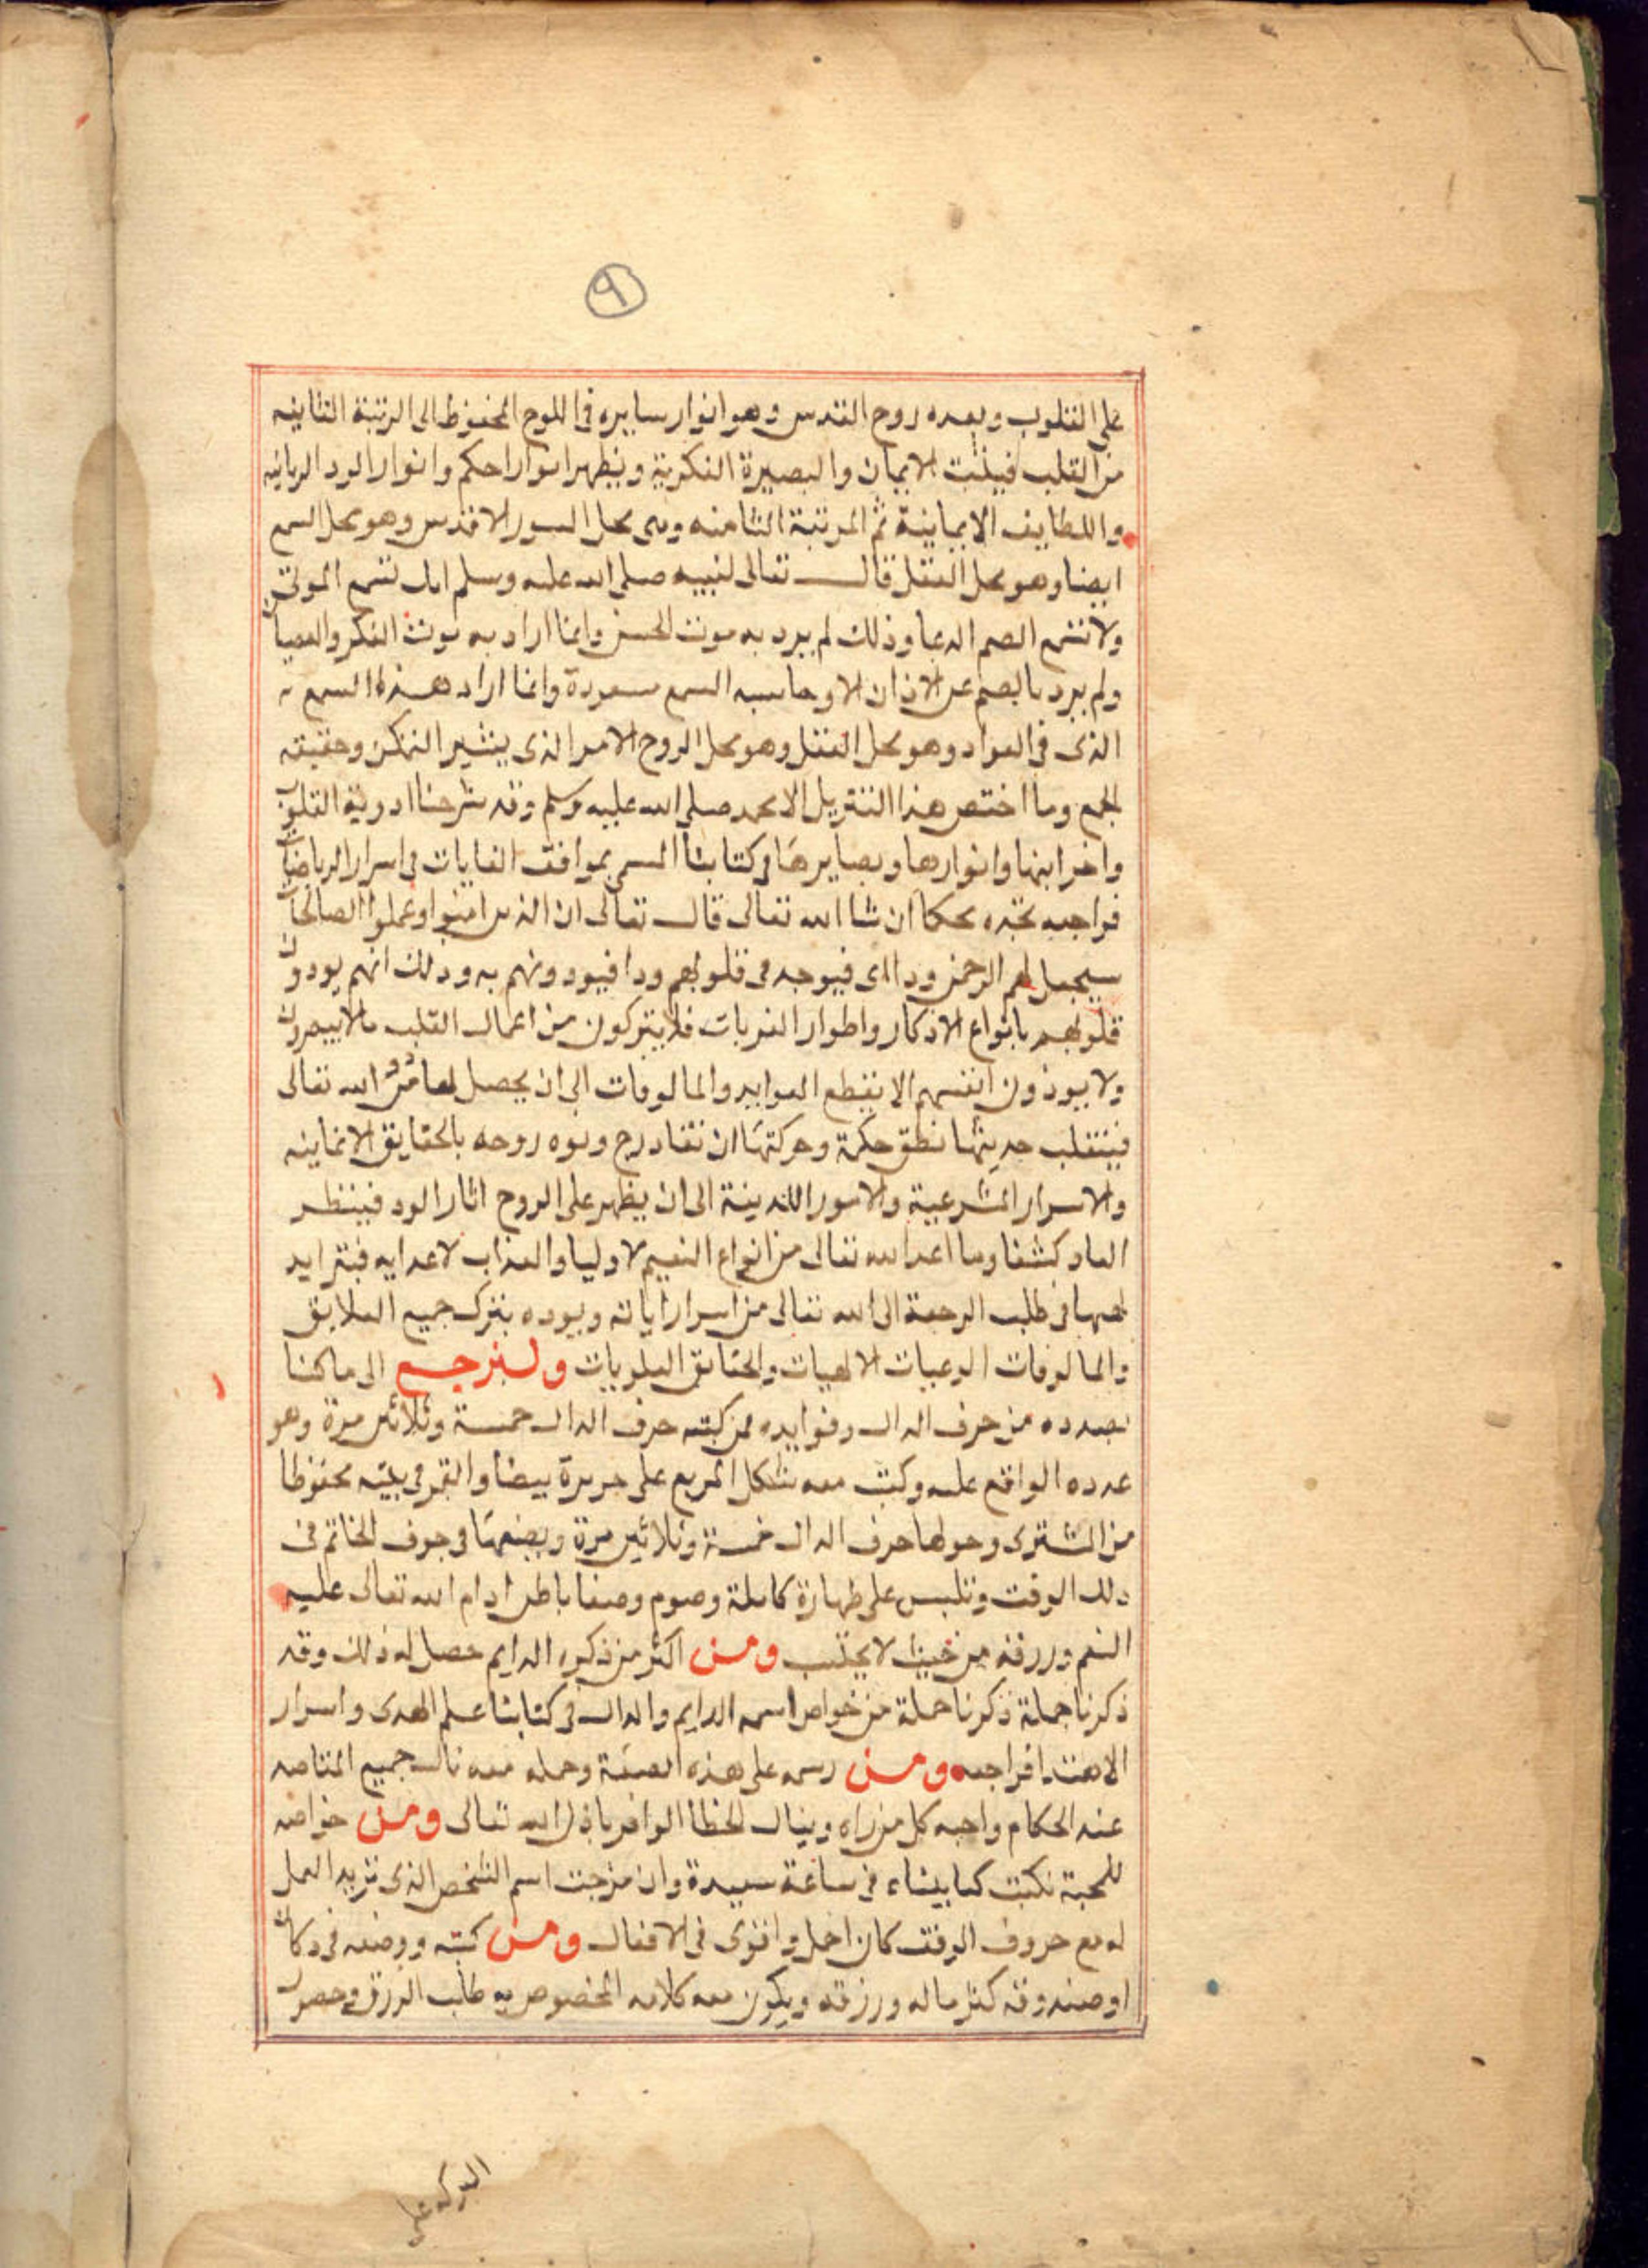 ٩
على القلوب وبعده روح القدس وهو انوار سايره فى اللوح المحفوظ الى الرتبة الثانيه
من القلب فيثبت الايمان والبصيرة الفكرية ويظهر اسرار الحكم وانوار الود الربانيه
واللطايف الايمانية ثم المرتبة الثامنه وهى محل السور الاقدس وهو محل السمع
ايضا وهو محل العقل قال تعالى لنبيه صلى الله عليه وسلم انك تسمع الموتى
ولا تسمع الصم الدعا وذلك لم يرد به موت الحس وانما اراد به موت الفكر والعصيان
ولم يرد بالصم عن الاذان الا وحاسه السمع موجودة وانما اراد هذا السمع
الذى فى الفواد وهو محل العقل وهو محل الروح الامر الذى يشير التمكن وحقيقه
الجمع وما اختص هذا التنزيل الا محمد صلى الله عليه وسلم وقد شرحنا ادوية القلوب
واخزانها وانوارها وبصايرها فى كتابنا المسمى بمواقف الغايات فى اسرار الرياضيات
فراجعه تجده محكما ان شا الله تعالى قال تعالى ان الذين امنوا وعملوا الصالحات
سيجعل لهم الرحمن ودا اى فيوجد فى قلوبهم ودا فيودونهم به وذلك انهم يودون
قلوبهم بانواع الاذكار واطوار القربات فلا يتركون من اعمال القلب ما لا يبصرون
ولا يوذون انفسهم الا بقطع العوايد والمالوفات الى ان يحصل لها من الله تعالى
فينقلب حديثها نطق حكمة وحركتها ان تقادرج وبوه روحه بالحقايق الايمانيه
والاسرار الشرعية والامور اللدنية الى ان يظهر على الروح اثار الود فينظر
المعاد كشفا وما اعد الله تعالى من انواع النعيم لاوليا والعذاب لاعدايه فيتزايد
لحبها فى طلب الرحمة الى الله تعالى من اسرار اياته ويوده بترك جميع العلايق
والمالوفات الوهبيات الالهيات والحقايق العلويات ولنرجع الى ما كنا
بصدده من حرف الدال وفوايده فمن كتب حرف الدال خمسة وثلاثين مرة وهو
عدده الواقع عليه وكتب معه شكل المربع على حريرة بيضا والقمر فى بيته محفوظا
من المشترى وحولها حرف الدال خمسة وثلاثين مرة ويضعها فى جوف الخاتم فى
ذلك الوقت وتلبس على طهارة كاملة وصوم وصفا باطن ادام الله تعالى عليه
النعم ورزقه من حيث لا يحتسب ومن اكثر من ذكره الدايم حصل له ذلك وقد
ذكرنا جملة ذكرنا جملة من خواص اسمه الدايم والدال فى كتابنا علم الهدى واسرار
الاهتدا فراجعه ومن رسمه على هذه الصفة وحمله معه نال جميع المقاصد
عند الحكام واحبه كل من راه وينال الحظ الوافر باذن الله تعالى ومن خواصه
للمحبة تكتب كما يشاء فى ساعة سعيدة وان مزجت اسم الشخص الذى تريد العمل
له مع حروف الوفق كان اجل واقوى فى الافعال ومن كتبه ووضعه فى دكان
او صندوقه كثر ماله ورزقه ويكون معه كلامه المخصوص به طلب الرزق وحصول
البركه على